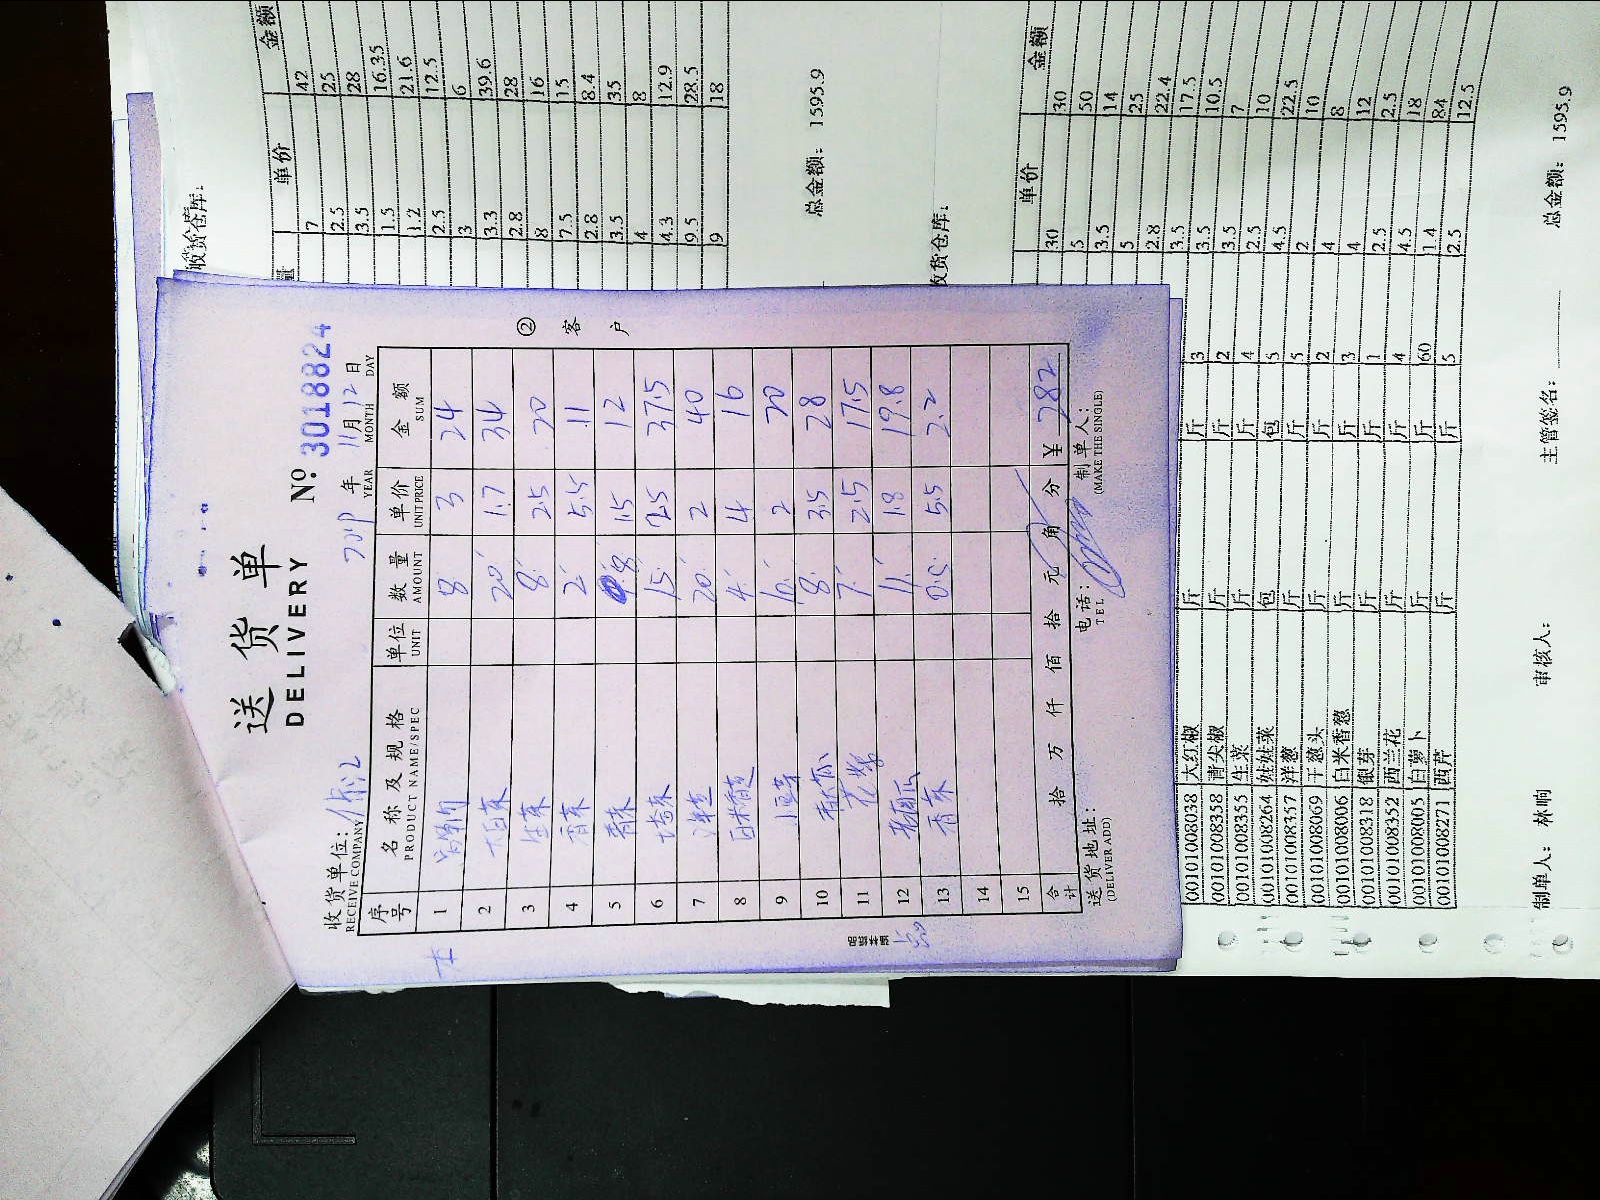 送货单
DELIVERY
No 3018824
收货单位:
RECEIVE COMPANY
年 11月12日
YEAR MONTH DAY
序号 名称及规格 单位 数量 单价 金额
PRODUCT NAME/SPEC UNIT AMOUNT UNIT PRICE SUM
1 8 3 24
2 大白菜 20 1.7 34
3 生菜 8 2.5 20
4 香菜 2 5.5 11
5 8 1.5 12
6 15 2.5 37.5
7 20 2 40
8 白米香葱 4 4 16
9 10 2 20
10 8 3.5 28
11 7 2.5 17.5
12 11 1.8 19.8
13 香菜 0.5 5.5 2.2
14
15
合计 拾 万 仟 佰 拾 元 角 分 ¥ 282
送货地址:
(DELIVER ADD)
电话:
TEL
制单人:
(MAKE THE SINGLE)
② 客户
收货仓库:
量 单价 金额
7 42
2.5 25
3.5 28
1.5 16.35
1.2 21.6
2.5 12.5
3 6
3.3 39.6
2.8 28
8 16
7.5 15
2.8 8.4
3.5 35
4 8
4.3 12.9
9.5 28.5
9 18
总金额: 1595.9
收货仓库:
单价 金额
30 30
5 50
3.5 14
5 25
2.8 22.4
00101008038 大红椒 斤 斤 3.5 17.5
00101008358 青尖椒 斤 斤 3 3.5 10.5
00101008355 生菜 斤 斤 2 3.5 7
00101008264 娃娃菜 包 包 4 2.5 10
00101008357 洋葱 斤 斤 5 4.5 22.5
00101008069 干葱头 斤 斤 5 2 10
00101008006 白米香葱 斤 斤 2 4 8
00101008318 银芽 斤 斤 3 4 12
00101008352 西兰花 斤 斤 1 2.5 2.5
00101008005 白萝卜 斤 斤 4 4.5 18
00101008271 西芹 斤 斤 60 1.4 84
5 2.5 12.5
制单人: 林响
审核人:
主管签名:
总金额: 1595.9